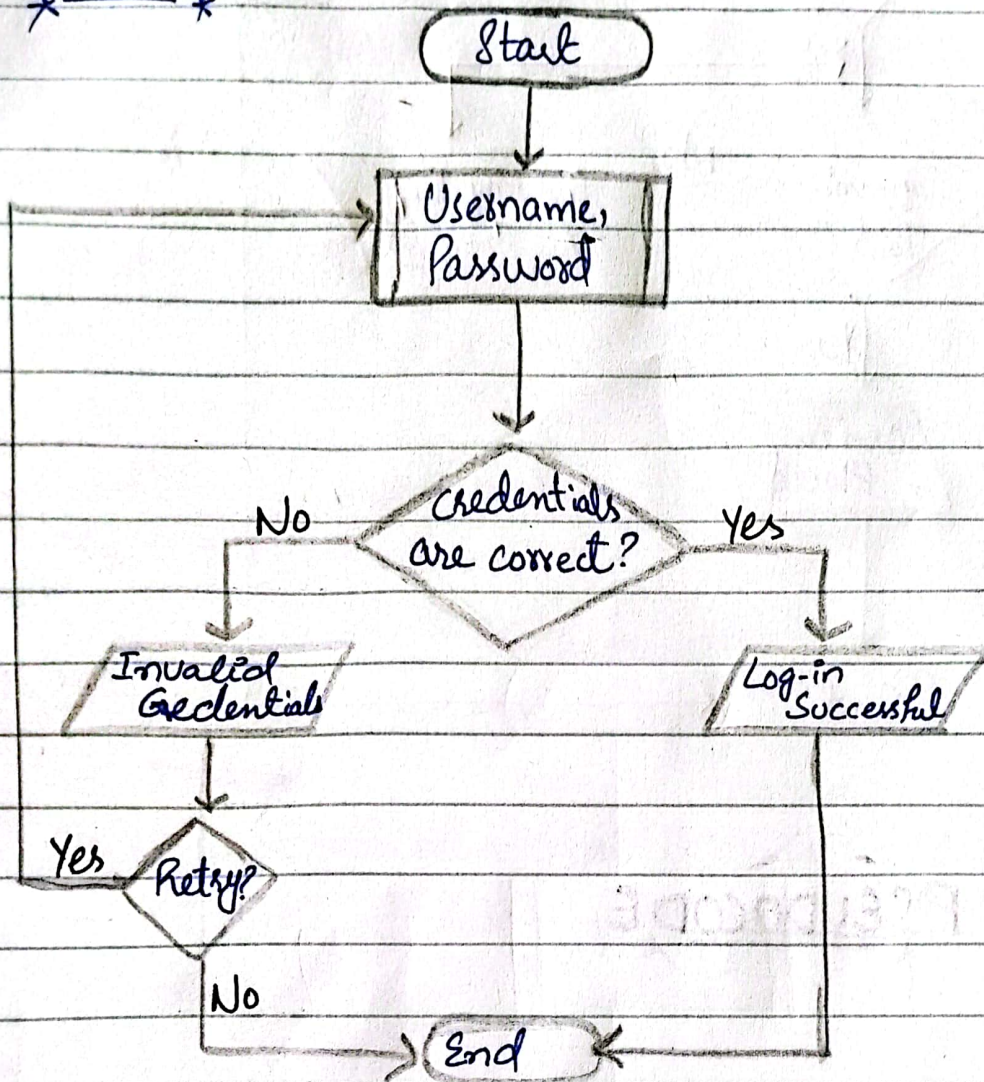 Start
Username,
Password
Credentials
are correct?
No
Yes
Invalid
Credentials
Log-in
Successful
Yes
Retry?
No
End
PSEUDOCODE